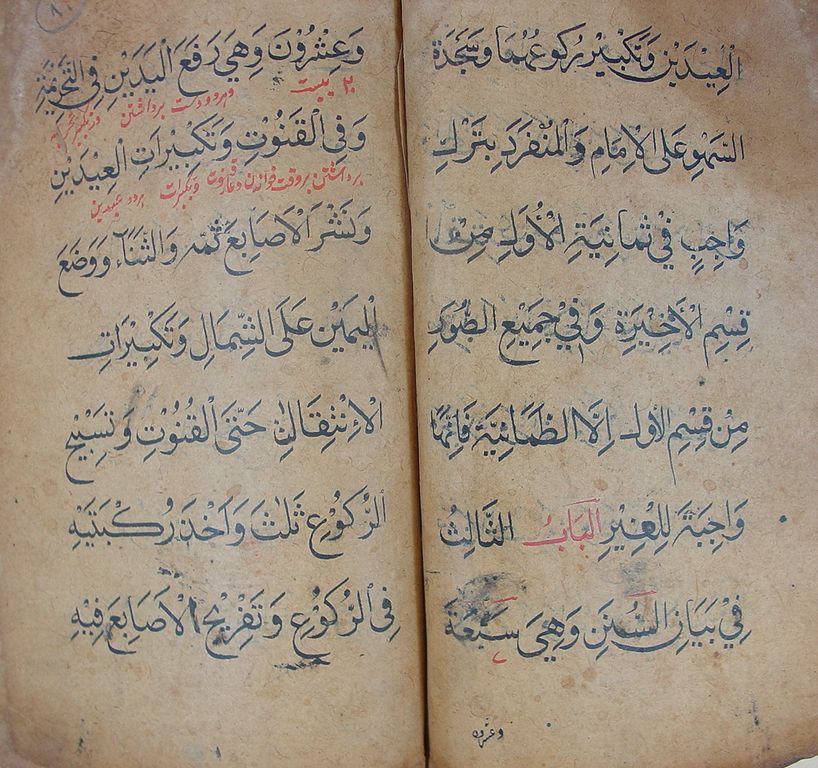 الْعِيْدَيْنِ وَتَكْبِيْرِ رُكُوعِهِمَا وَسَجْدَةُ
السَّهْوِ عَلَى الْاِمَامِ وَالْمُنْفَرِدِ بِتَرْكِ
وَاجِبٍ فِي ثَمَانِيَةِ الْأُوَلِ مِنْ
قِسْمِ الْأَخِيْرَةِ وَفِيْ جَمِيْعِ الصُّوَرِ
مِنْ قِسْمِ الْأَوَّلِ اِلَّا الطَّمَانِيَّةَ فَاِنَّهَا
وَاجِبَةٌ لِلْغَيْرِ اَلْبَابُ الثَّالِثُ
فِيْ بَيَانِ السُّنَنِ وَهِيَ سَبْعَةٌ
٧
وعشرون
٨
وَعِشْرُوْنَ وَهِيَ رَفْعُ الْيَدَيْنِ فِي التَّحْرِيْمَةِ
٢٠ بيست هر دو دست برداشتن در تكبير
وَفِي الْقُنُوْتِ وَتَكْبِيْرَاتِ الْعِيْدَيْنِ
برداشتن بروقت خواندن دعا قنوت وتكبيرات هردو عيدين
وَنَشْرُ الْاَصَابِعِ ثَمَّهْ وَالثَّنَآءُ وَوَضْعُ
الْيَمِيْنِ عَلَى الشِّمَالِ وَتَكْبِيْرَاتِ
الْاِنْتِقَالَاتِ حَتَّى الْقُنُوْتِ وَتَسْبِيْحِ
الرُّكُوْعِ ثَلٰثَ وَاَخْذُ رُكْبَتَيْهِ
فِي الرُّكُوْعِ وَتَفْرِيْجُ الْاَصَابِعِ فِيْهِ